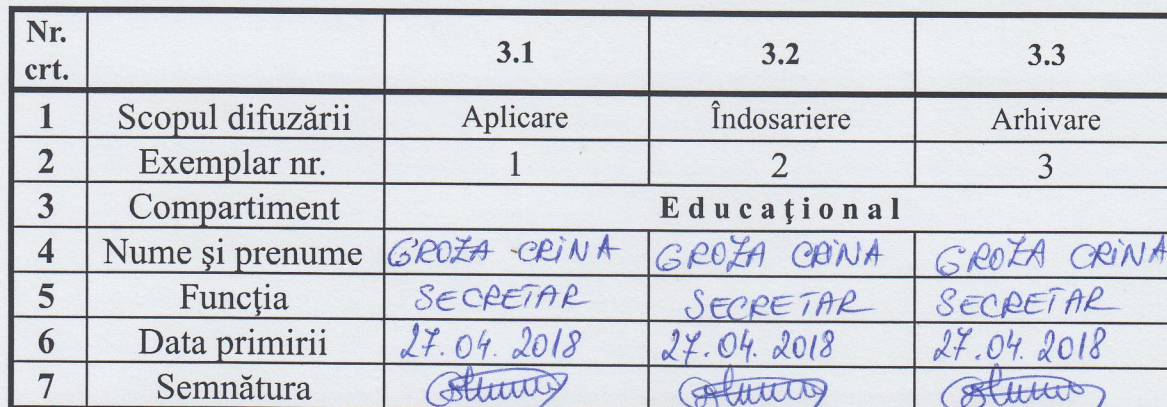 Nr. crt. 3.1 3.2 3.3
1 Scopul difuzării Aplicare Îndosariere Arhivare
2 Exemplar nr. 1 2 3
3 Compartiment Educaţional
4 Nume şi prenume GROZA CRINA GROZA CRINA GROZA CRINA
5 Funcţia SECRETAR SECRETAR SECRETAR
6 Data primirii 27.04.2018 27.04.2018 27.04.2018
7 Semnătura